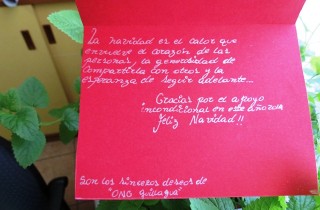 La Navidad es el calor que
envuelve el corazón de las
personas, la generosidad de
compartirla con otros y la
esperanza de seguir adelante...
Gracias por el apoyo
incondicional en este año 2014
Feliz Navidad!!
Son los sinceros deseos de
"ONG Quillagua"